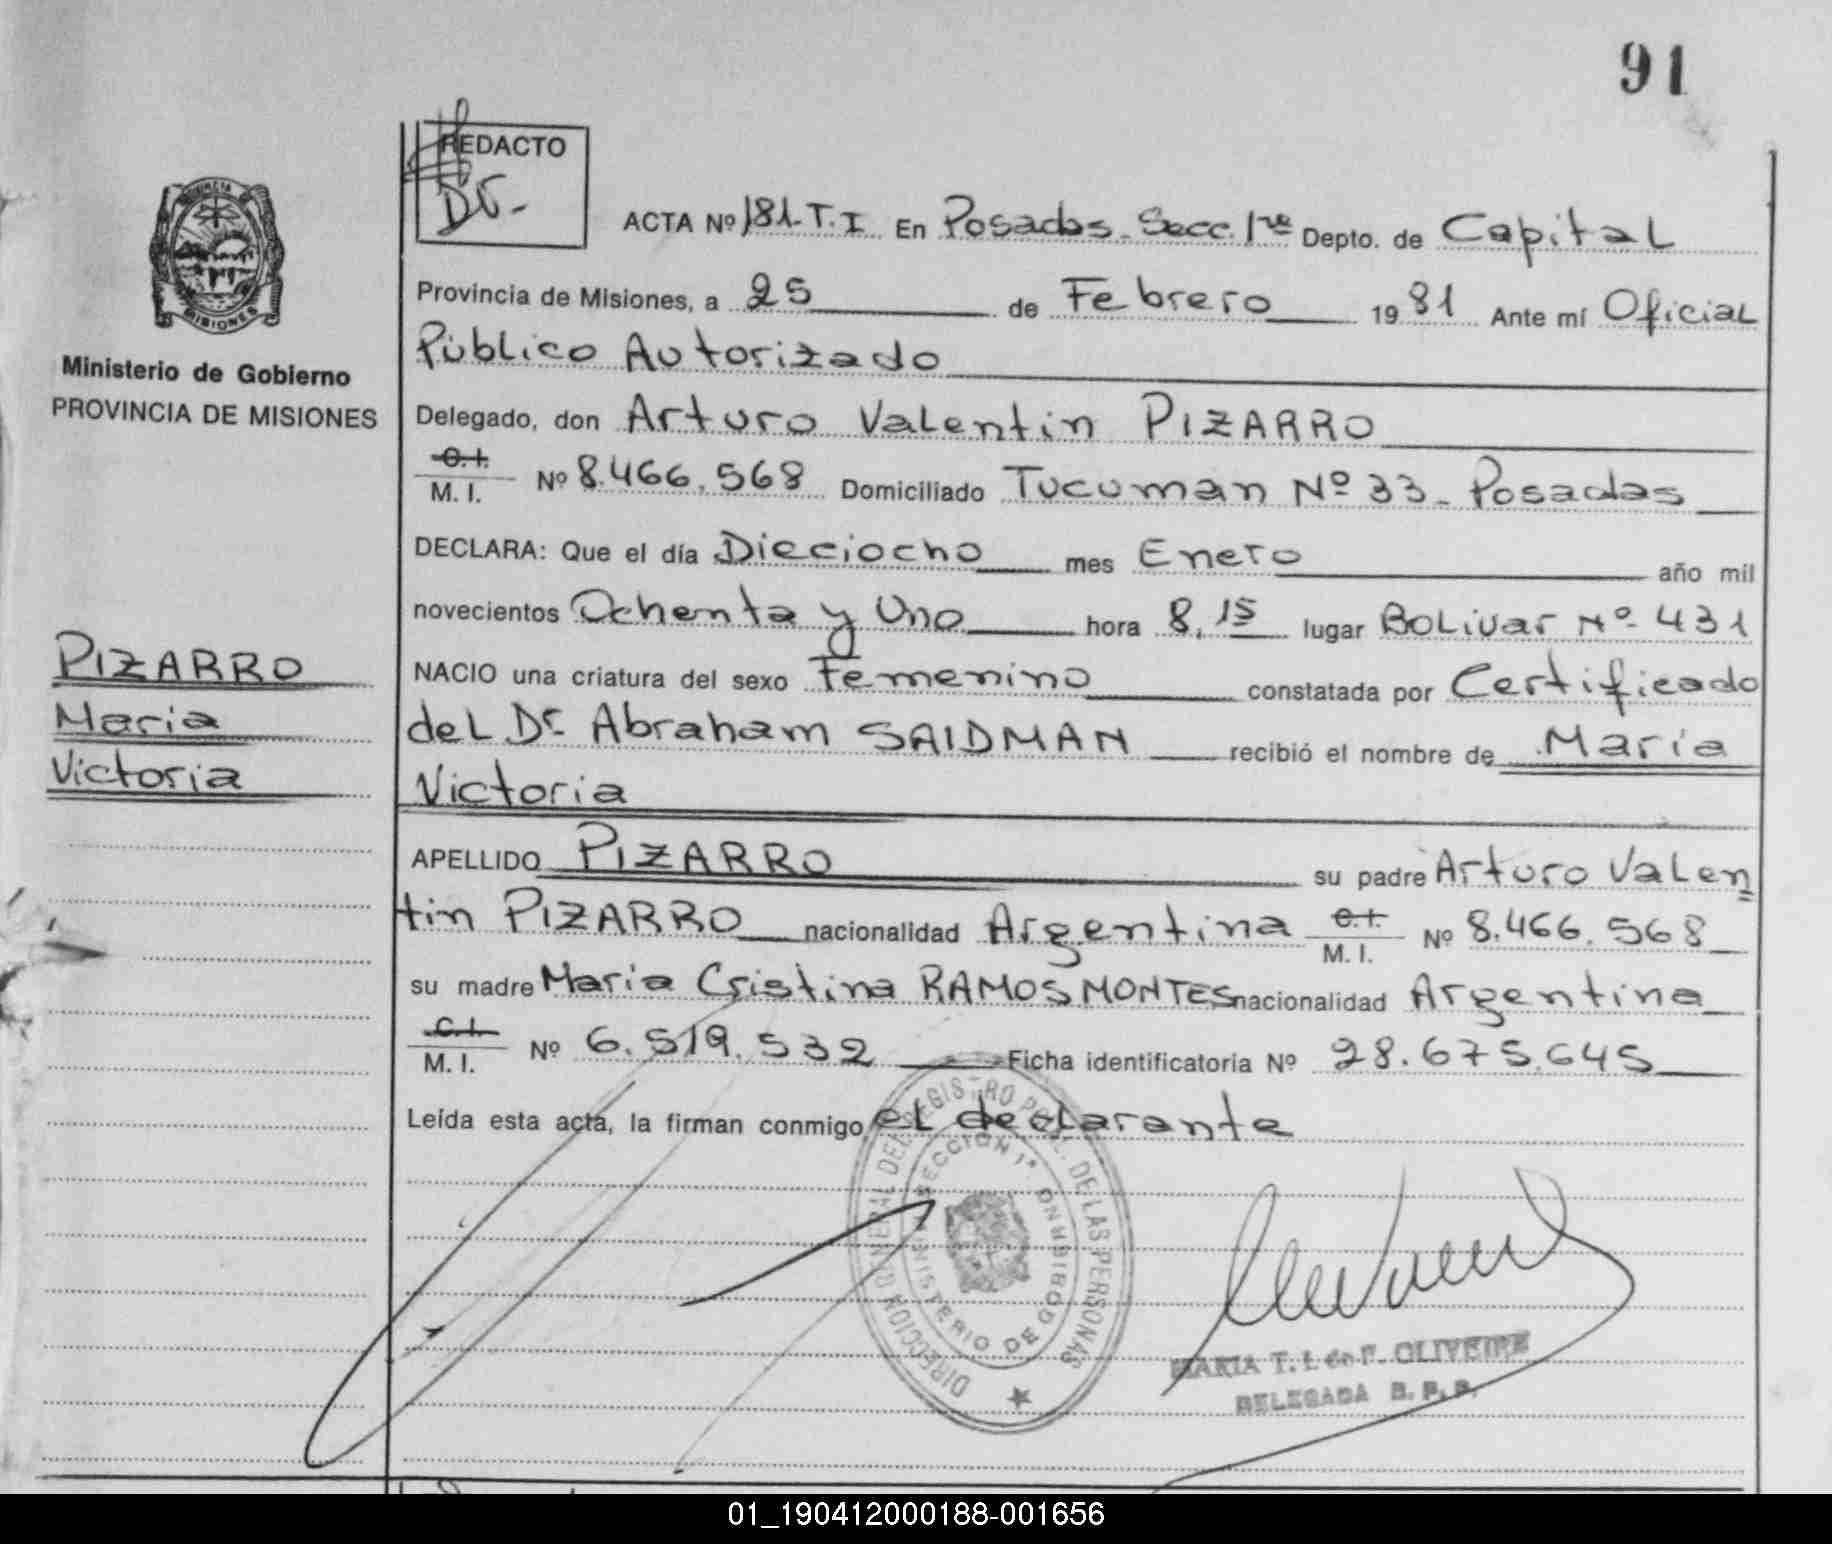 91
REDACTO
ACTA Nº 181-T.I En Posadas-Secc. 1ra Depto. de Capital
Provincia de Misiones, a 25 de Febrero 1981 Ante mí Oficial
Público Autorizado
Ministerio de Gobierno
PROVINCIA DE MISIONES
Delegado, don Arturo Valentin PIZARRO
C.I.
M. I. Nº 8.466.568 Domiciliado Tucuman Nº 33- Posadas
DECLARA: Que el día Dieciocho mes Enero año mil
novecientos Ochenta y Uno hora 8,15 lugar Bolivar Nº 431
PIZARRO
Maria
Victoria
NACIO una criatura del sexo Femenino constatada por Certificado
del Dr. Abraham SAIDMAN recibió el nombre de Maria
Victoria
APELLIDO PIZARRO su padre Arturo Valen
tin PIZARRO nacionalidad Argentina C.I. M. I. Nº 8.466.568
su madre Maria Cristina RAMOS MONTES nacionalidad Argentina
C.I.
M. I. Nº 6.519.532 Ficha identificatoria Nº 28.675.645
Leída esta acta, la firman conmigo el declarante
DIRECCION GENERAL DEL REGISTRO PCIAL. DE LAS PERSONAS
SECCION 1ª
MINISTERIO DE GOBIERNO
MARIA T. I. de F. OLIVEIRE
DELEGADA R. P. P.
01_190412000188-001656